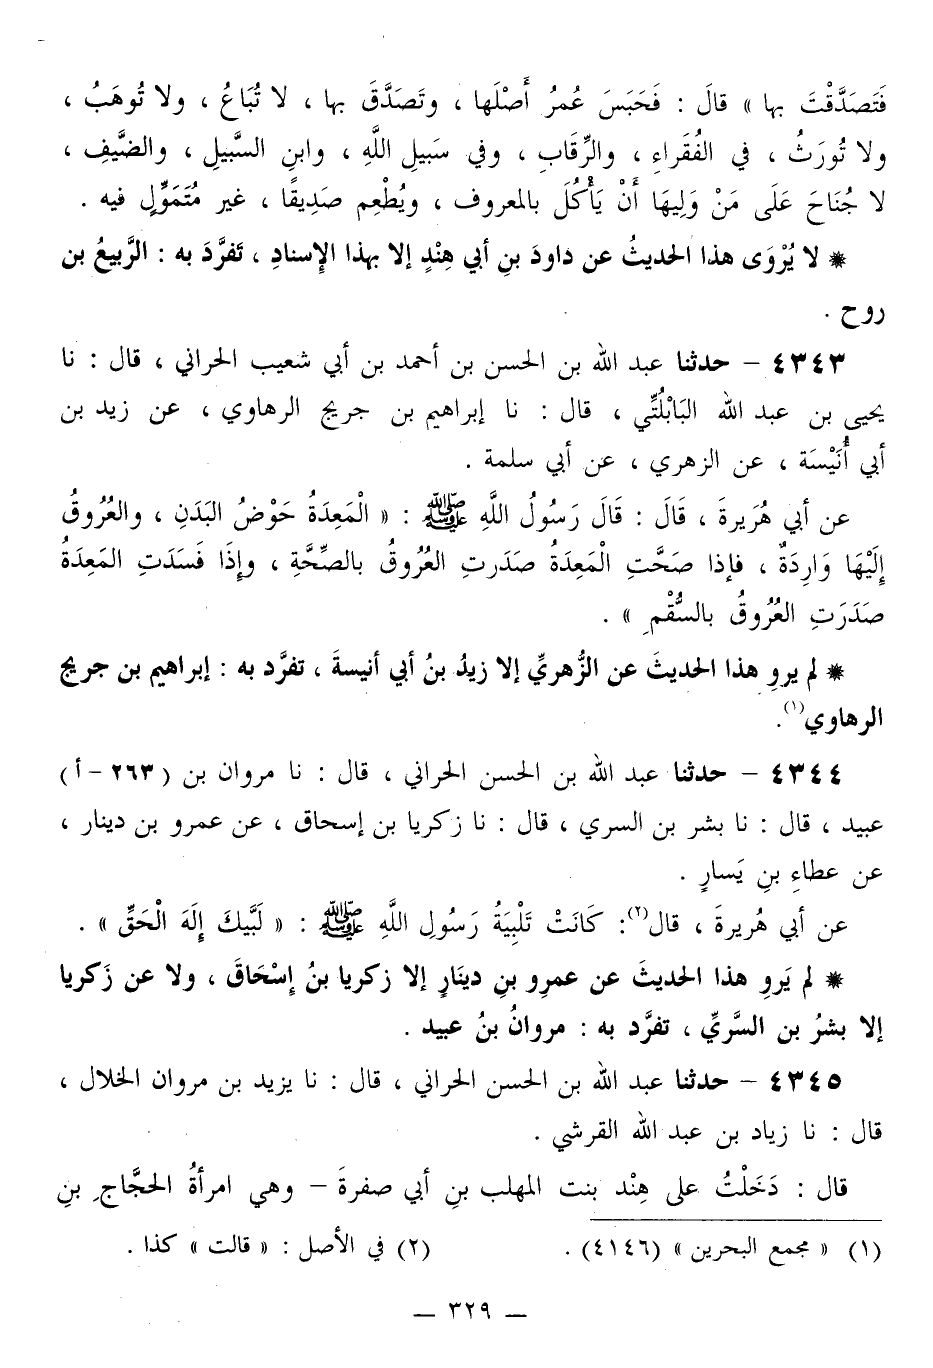 فَتَصَدَّقْتَ بها » قالَ : فَحَبَسَ عُمرُ أَصْلَها ، وتَصَدَّقَ بها ، لا تُبَاعُ ، ولا تُوهَبُ ،
ولا تُورَثُ ، في الفُقَراءِ ، والرِّقَابِ ، وفي سَبيلِ اللَّهِ ، وابنِ السَّبيلِ ، والضَّيفِ ،
لا جُنَاحَ عَلَى مَنْ وَلِيهَا أَنْ يَأْكُلَ بالمعروف ، ويُطْعِم صَدِيقًا ، غير مُتَمَوِّلٍ فيه .
* لا يُرْوَى هذا الحديثُ عن داودَ بنِ أبي هِنْدٍ إلا بهذا الإِسنادِ ، تَفرَّدَ به : الرَّبيعُ بن
روح .
٤٣٤٣ – حدثنا عبد الله بن الحسن بن أحمد بن أبي شعيب الحراني ، قال : نا
يحيى بن عبد الله البَابْلُتِّي ، قال : نا إبراهيم بن جريج الرهاوي ، عن زيد بن
أبي أُنَيْسَة ، عن الزهري ، عن أبي سلمة .
عن أبي هُرَيرةَ ، قَالَ : قَالَ رَسُولُ اللَّهِ ﷺ : « الْمَعِدَةُ حَوْضُ البَدَنِ ، والعُرُوقُ
إِلَيْهَا وَارِدَةٌ ، فإذا صَحَّتِ الْمَعِدَةُ صَدَرتِ العُرُوقُ بالصِّحَّةِ ، وإِذَا فَسَدَتِ المَعِدَةُ
صَدَرَتِ العُرُوقُ بالسُّقْمِ » .
* لم يروِ هذا الحديثَ عن الزُّهريِّ إلا زيدُ بنُ أبي أنيسةَ ، تفرَّد به : إبراهيم بن جريج
الرهاوي(١).
٤٣٤٤ – حدثنا عبد الله بن الحسن الحراني ، قال : نا مروان بن (٢٦٣ – أ)
عبيد ، قال : نا بشر بن السري ، قال : نا زكريا بن إسحاق ، عن عمرو بن دينار ،
عن عطاءِ بنِ يَسارٍ .
عن أبي هُريرةَ ، قال(٢): كَانَتْ تَلْبِيَةُ رَسُولِ اللَّهِ ﷺ : « لَبَّيكَ إِلَهَ الْحَقِّ » .
* لم يَروِ هذا الحديثَ عن عمرِو بنِ دينَارٍ إلا زكريا بنُ إِسْحَاقَ ، ولا عن زَكريا
إلا بشرُ بن السَّريِّ ، تفرَّد به : مروانُ بنُ عبيد .
٤٣٤٥ – حدثنا عبد الله بن الحسن الحراني ، قال : نا يزيد بن مروان الخلال ،
قال : نا زياد بن عبد الله القرشي .
قال : دَخَلْتُ على هِنْد بنت المهلب بنِ أبي صفرةَ – وهي امرأةُ الحجَّاجِ بنِ
(١) « مجمع البحرين » (٤١٤٦) .
(٢) في الأصل : « قالت » كذا .
— ٣٢٩ —